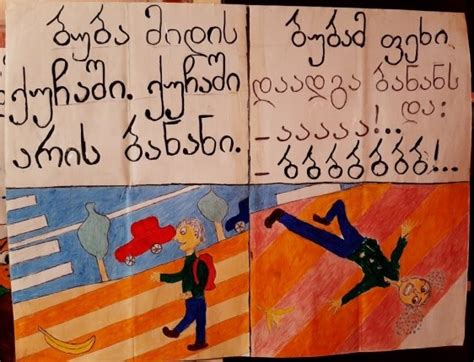 ბუბა მიდის
ქუჩაში. ქუჩაში
არის ბანანი.
ბუბამ ფეხი
დაადგა ბანანს
და:
– ააააა!...
– ბბბბბბბ!..